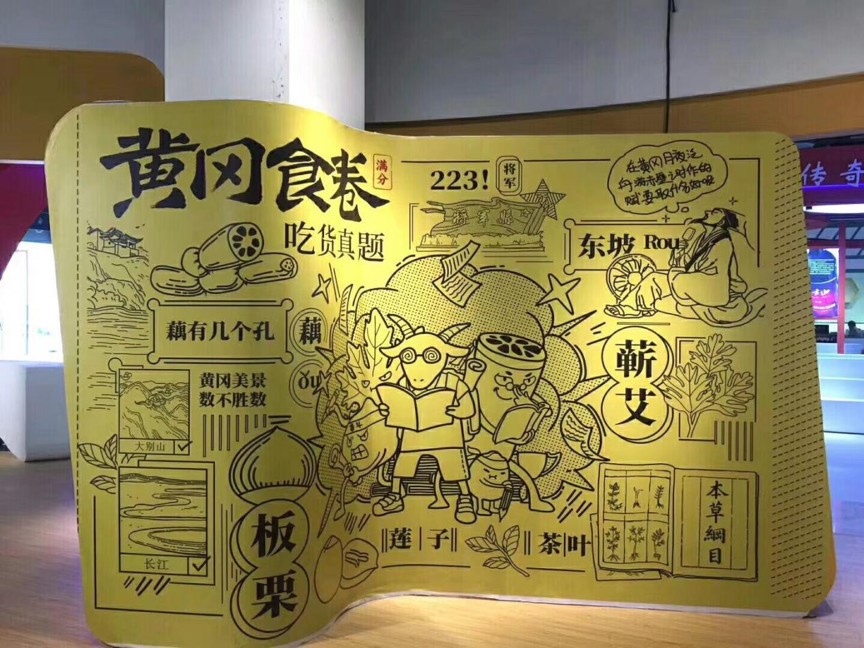 黄冈食卷
满分
吃货真题
223!
将军
将军县
在黄冈月夜泛
向游赤壁时作的
赋要取什名如呢
东坡 Rou
传奇
藕有几个孔
藕
ǒu
黄冈美景
数不胜数
大别山
长江
板栗
蕲艾
本草綱目
莲|子
茶|叶